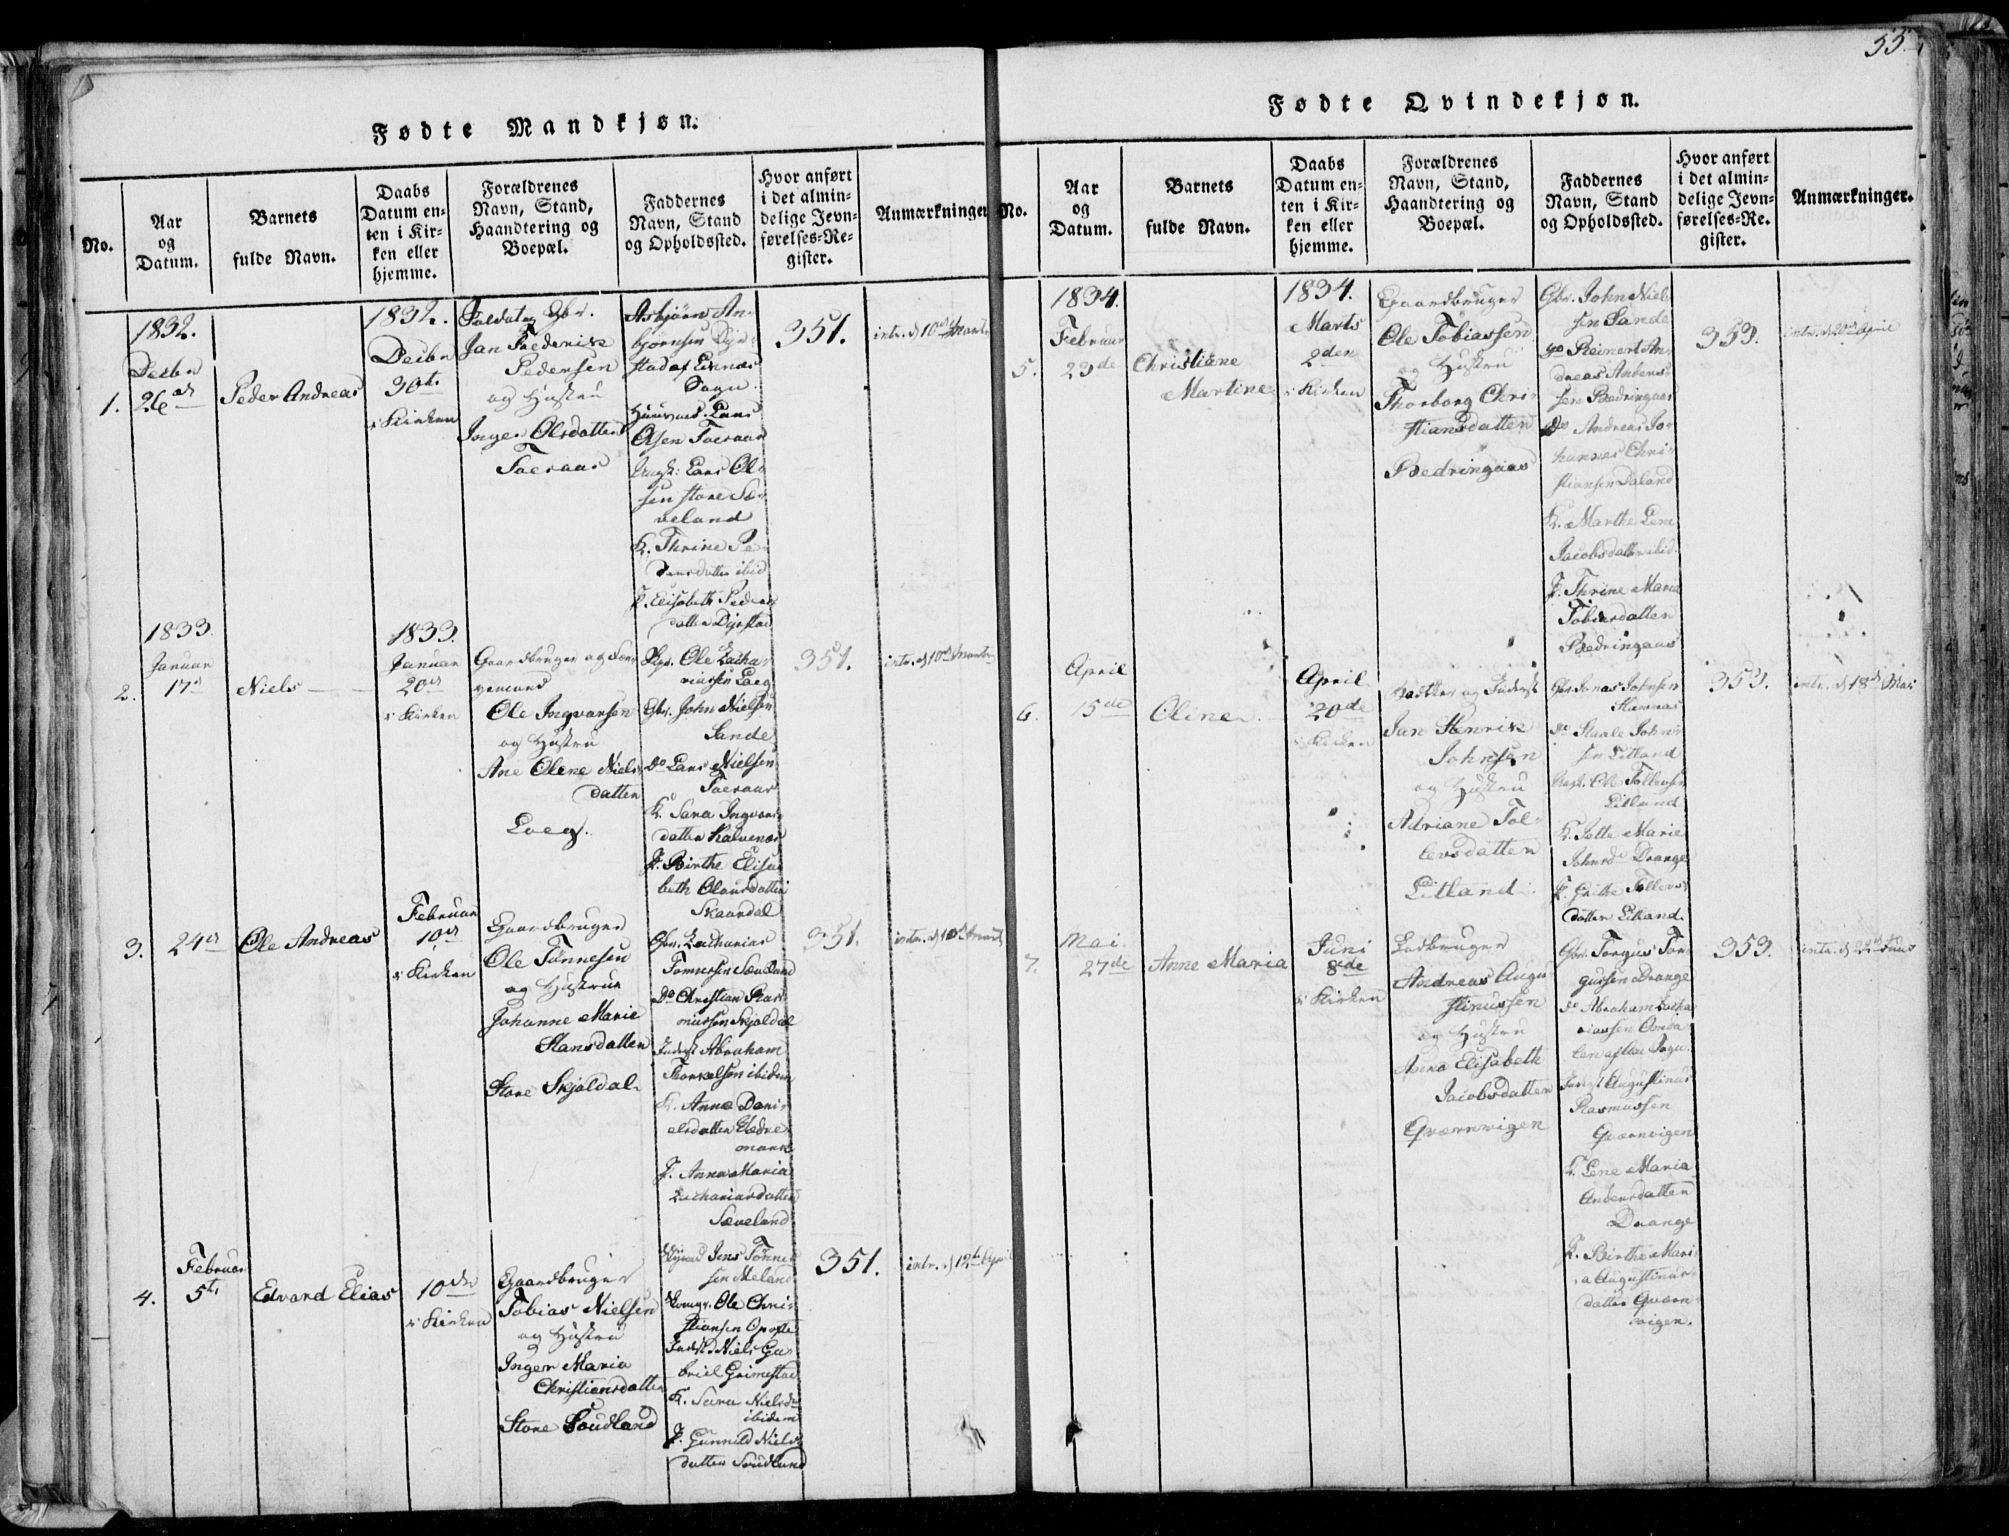 55.
Fødte Mandkjøn.
No.
Aar
og
Datum.
Barnets
fulde Navn.
Daabs
Datum en-
ten i Kir-
ken eller
hjemme.
Forældrenes
Navn, Stand,
Haandtering og
Boepæl.
Faddernes
Navn, Stand
og Opholdssted.
Hvor anført
i det almin-
delige Jevn-
førelses-Re-
gister.
Anmærkninger
1832.
Decbr
1. 26de
Peder Andreas
1832.
Decbr
30te
i Kirken
Soldat og Gbr.
Jan Frederik
Pedersen
og Hustru
Inger Olsdatter
Foesaas
Asbjørn As-
bjørnsen
stad af
Sogn
Lars
Olsen Foesaas
Ungk: Lars Ol-
sen store Sæ-
veland
K. Thrine Pe-
dersdatter ibid
P. Elisabeth Peders
datter
351.
intr. d 10de Marts
1833.
Januar
2. 17de
Niels
1833.
Januar
20de
i Kirken
Gaardbruger og
Ole Ingvarsen
og Hustru
Ane Olene Niels
datter
Loeg.
Ole Zacha-
riassen Loeg
Gbr. John Nielsen
Sande
do Lars Nielsen
Foesaas
K. Sara Ingvars
datter
P. Birthe Elisa
beth Olausdatter
Skaardal
351.
intr. d 10de Marts
3. 24de
Ole Andreas
Februar
10de
i Kirken
Gaardbruger
Ole Tønnesen
og Hustrue
Johanne Marie
Hansdatter
Store Skjoldal
Gbr. Zacharias
Tønnessen Sæveland
do Christian Ras-
mussen Skjoldal
Inderst Abraham
Thorkelsen ibidem
K. Anna Dani-
elsdatter Vedre-
mark
P. Anna Maria
Zachariasdatter
Sæveland
351.
intr. d 10de Marts
Februar
4. 5te
Edvard Elias
10de
i Kirken
Gaardbruger
Tobias Nielsen
og Hustru
Inger Maria
Christiansdatter
Store Soudland
Jens Tønne
sen Meland
Ole Chri-
stiansen Opofte
Inderst Niels Ga-
briel Grimestad
K. Sara Nielsd.
ibidem
P. Gunnild Niels
datter Soudland
351.
intr. d 12te Apr
Fødte Qvindekjøn.
No.
Aar
og
Datum.
Barnets
fulde Navn.
Daabs
Datum en-
ten i Kir-
ken eller
hjemme.
Forældrenes
Navn, Stand,
Haandtering og
Boepæl.
Faddernes
Navn, Stand
og Opholdssted.
Hvor anført
i det almin-
delige Jevn-
førelses-Re-
gister.
Anmærkninger.
1834.
Februar
5. 23de
Christiane
Martine
1834.
Marts
2den
i Kirken
Gaardbruger
Ole Tobiassen
og Hustru
Thorborg Chri-
stiansdatter
Bedringaas
Gbr. John Niel-
sen Sande
do Reinert An-
dreas Anders-
sen Bedringaas
do Andreas Jo-
hannes Chri-
stiansen Daland
K. Marthe Lene
Jacobsdatter ibid.
P. Thrine Maria
Tobiasdatter
Bedringaas
353.
intr. d 20de April
April
6. 15de
Oline
April
20de
i Kirken
og Inderst
Jan Henrik
Johnsen
og Hustru
Adriane Tol-
levsdatter
Litland
Gbr. Jonas Johnsen
do Staale John-
sen Litland
Ungk. Ole Tollevsen
Litland
K. Jette Marie
Johnsd. Drange
P. Grethe Tollevs
datter Litland
353.
intr. d 18de Mai
Mai
7. 27de
Anne Maria
Juni
8de
i Kirken
Ladbruger
Andreas Augu-
stinussen
og Hustru
Anna Elisabeth
Jacobsdatter
Qværnvigen
Gbr. Torgus Tor-
gussen Drange
do Abraham Zacha
riassen Omda-
len
Inderst Augustinus
Rasmussen
Qværnvigen
K. Lene Maria
Andersdatter
Drange
P. Birthe Mari-
a Augustinus-
datter Qværn-
vigen.
353.
intr. d 22de Juni